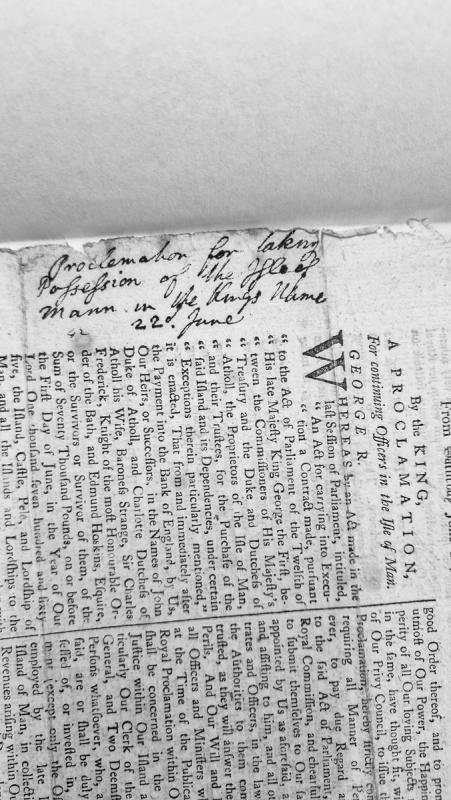 Proclemation for taking
Possession of the Isle of
Mann in the Kings Name
22d. June
By the KING,
A PROCLAMATION,
For continuing Officers in the Isle of Man.
GEORGE R.
WHEREAS by an Act made in the
last Session of Parliament, intituled,
“ An Act for carrying into Execu-
“ tion a Contract made, pursuant
“ to the Act of Parliament of the Twelfth of
“ His late Majesty King George the First, be-
“ tween the Commissioners of His Majesty's
“ Treasury and the Duke and Dutchess of
“ Atholl, the Proprietors of the Isle of Man,
“ and their Trustees, for the Purchase of the
“ said Island and its Dependencies, under certain
“ Exceptions therein particularly mentioned,”
it is enacted, That from and immediately after
the Payment into the Bank of England, by Us,
Our Heirs, or Successors, in the Names of John
Duke of Atholl, and Charlotte Dutchess of
Atholl his Wife, Baroness Strange, Sir Charles
Frederick, Knight of the most Honourable Or-
der of the Bath, and Edmund Hoskins, Esquire,
or the Survivors or Survivor of them, of the
Sum of Seventy Thousand Pounds, on or before
the First Day of June, in the Year of Our
Lord One thousand seven hundred and sixty-
five, the Island, Castle, Pele, and Lordship of
Man, and all the Islands and Lordships to the
good Order thereof, and to pro
utmost of Our Power, the Happi
perity of all Our loving Subjects
in the same, have thought fit, w
of Our Privy Council, to issue
Proclamation, hereby strictly
requiring all Manner of Pe
ever, to pay due Regard a
to the said Act of Parliament,
Royal Commission, and chearful
to submit themselves to Our
appointed by Us as aforesaid, a
and assisting to him, and all ot
trates and Officers, in the law
the Authorities to them com
trusted, as they will answer the
Perils. And Our Will and
all Officers and Ministers w
at the Time of the Publica
Royal Proclamation within O
shall be concerned in the
Justice within Our Island a
ticularly Our Clerk of the
General, and Two Deemst
Persons whatsoever, who a
said, are or shall be duly
sessed of, or invested in,
(except only the Of
employed by the late
Island of Man, in collecti
Revenues arising within